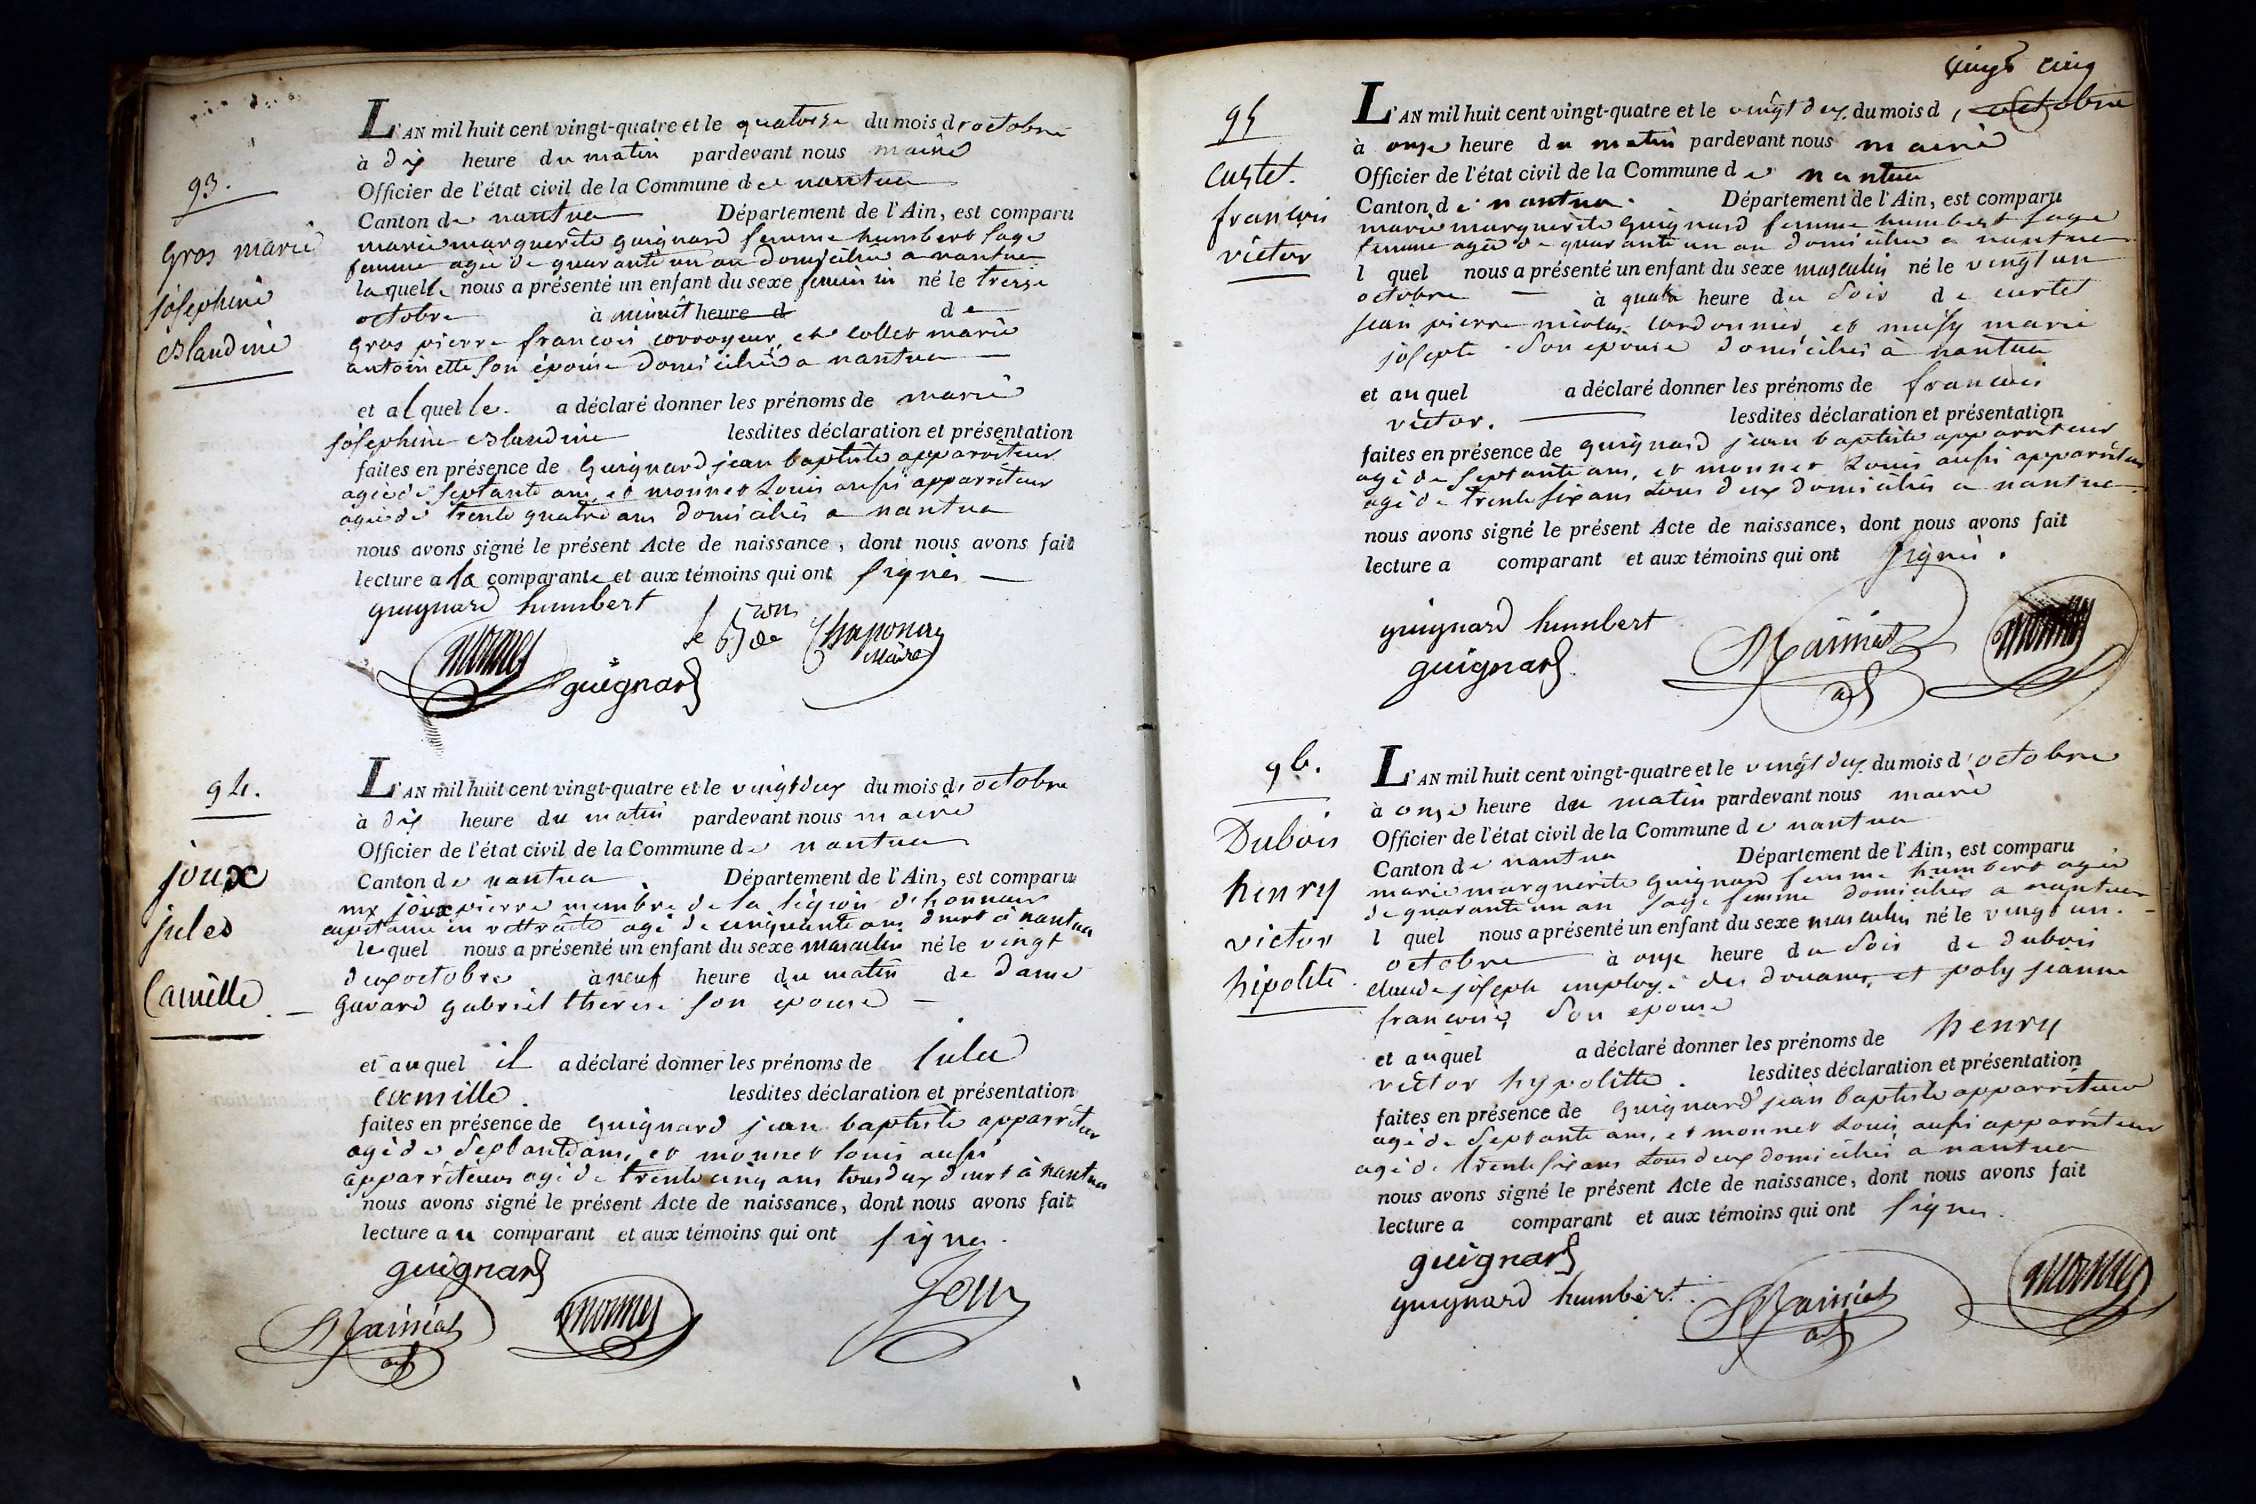 93.
Gros marie
joséphine
Blandine
L'AN mil huit cent vingt-quatre et le quatorze du mois d'octobre
à dix heure du matin pardevant nous maire
Officier de l'état civil de la Commune de nantua
Canton de nantua Département de l'Ain, est comparu
marie marguerite guignard femme humbert sage
femme agée de quarante un an domiciliée a nantua
laquelle nous a présenté un enfant du sexe feminin né le treize
octobre à minuit heure d de
gros pierre francois corroyeur, et collet marie
antoinette son épouse domiciliés a nantua
et alquelle. a déclaré donner les prénoms de marie
joséphine Blandine lesdites déclaration et présentation
faites en présence de Guignard jean baptiste apparriteur
agée de septante ans, et monnet Louis aussi apparriteur
agée de trente quatre ans domiciliés a nantua
nous avons signé le présent Acte de naissance, dont nous avons fait
lecture a la comparante et aux témoins qui ont signés
guignard humbert
monnet
guignard
le Bon de Chaponay
Maire
94.
joux
jules
Camille
L'AN mil huit cent vingt-quatre et le vingt deux du mois d'octobre
à dix heure du matin pardevant nous maire
Officier de l'état civil de la Commune de nantua
Canton de nantua Département de l'Ain, est comparu
mr joux pierre membre de la légion d'honneur
capitaine en rettraite agé de cinquante ans dmrt à nantua
lequel nous a présenté un enfant du sexe masculin né le vingt
deux octobre à neuf heure du matin de dame
Gavard gabriel thérèse son épouse
et auquel il a déclaré donner les prénoms de jules
camille. lesdites déclaration et présentation
faites en présence de Guignard jean baptiste apparriteur
agé de septante ans, et monnet louis aussi
apparriteur agé de trente cinq ans tous deux dmrt à nantua
nous avons signé le présent Acte de naissance, dont nous avons fait
lecture au comparant et aux témoins qui ont signer.
guignard
monnet
Joux
vingt cinq
95
curtet.
francois
victor
L'AN mil huit cent vingt-quatre et le vingt deux du mois d'octobre
à onze heure du matin pardevant nous maire
Officier de l'état civil de la Commune de nantua
Canton de nantua. Département de l'Ain, est comparu
marie marguerite Guignard femme humbert sage
femme agée de quarante un an domiciliée a nantua
l quel nous a présenté un enfant du sexe masculin né le vingt un
octobre à quatre heure du soir de curtet
jean pierre nicolas cordonnier, et marie
josepte son epouse domiciliés à nantua
et auquel a déclaré donner les prénoms de francois
victor. lesdites déclaration et présentation
faites en présence de guignard jean baptiste apparriteur
agé de septante ans, et monnet Louis aussi apparriteur
agé de trente six ans tous deux domiciliés a nantua
nous avons signé le présent Acte de naissance, dont nous avons fait
lecture a comparant et aux témoins qui ont signés.
guignard humbert
guignard
monnet
96.
Dubois
henry
victor
hipolite.
L'AN mil huit cent vingt-quatre et le vingt deux du mois d'octobre
à onze heure du matin pardevant nous maire
Officier de l'état civil de la Commune de nantua
Canton de nantua Département de l'Ain, est comparu
marie marguerite guignard femme humbert agée
de quarante un an sage femme domiciliée a nantua
l quel nous a présenté un enfant du sexe masculin né le vingt un.
octobre à onze heure du soir de dubois
claude joseph employé des douanes, et poly jeanne
francoise son epouse
et auquel a déclaré donner les prénoms de henry
victor hypolitte. lesdites déclaration et présentation
faites en présence de Guignard jean baptiste apparriteur
agé de septante ans, et monnet Louis aussi apparriteur
agé de trente six ans tous deux domiciliés a nantua
nous avons signé le présent Acte de naissance, dont nous avons fait
lecture a comparant et aux témoins qui ont signer.
guignard
guignard humbert.
monnet